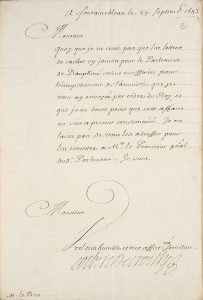 A Fontainebleau le 29 Septemb. 1683
Monsieur
Quoy que je ne croie pas que les lettres
de cachet cy jointes pour le Parlement
de Dauphiné soient necessaires pour
l'enregistrement de l'amnistie que je
vous ay envoyée par ordre du Roy, et
que je ne doute point que cette affaire
ne soit a present consommée. Je ne
laisse pas de vous les adresser pour
les remettre a Mr. le Procureur gnãl
aud. Parlement. Je suis
Monsieur
Vre tres humble et tres affné serviteur
M. le Bret